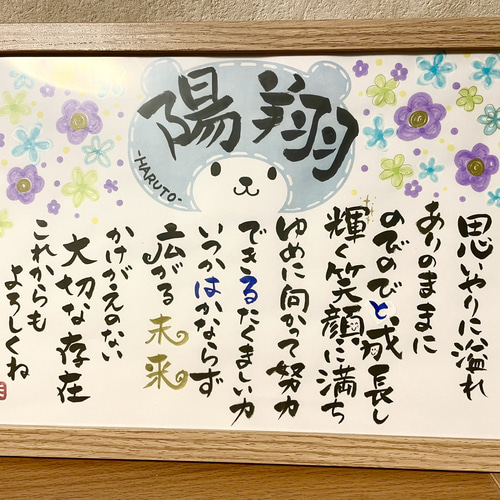 陽翔
-HARUTO-
思いやりに溢れ
ありのままに
のびのびと成長し
輝く笑顔に満ち
ゆめに向かって努力
できるたくましい力
いつかはかならず
広がる未来
かけがえのない
大切な存在
これからも
よろしくね